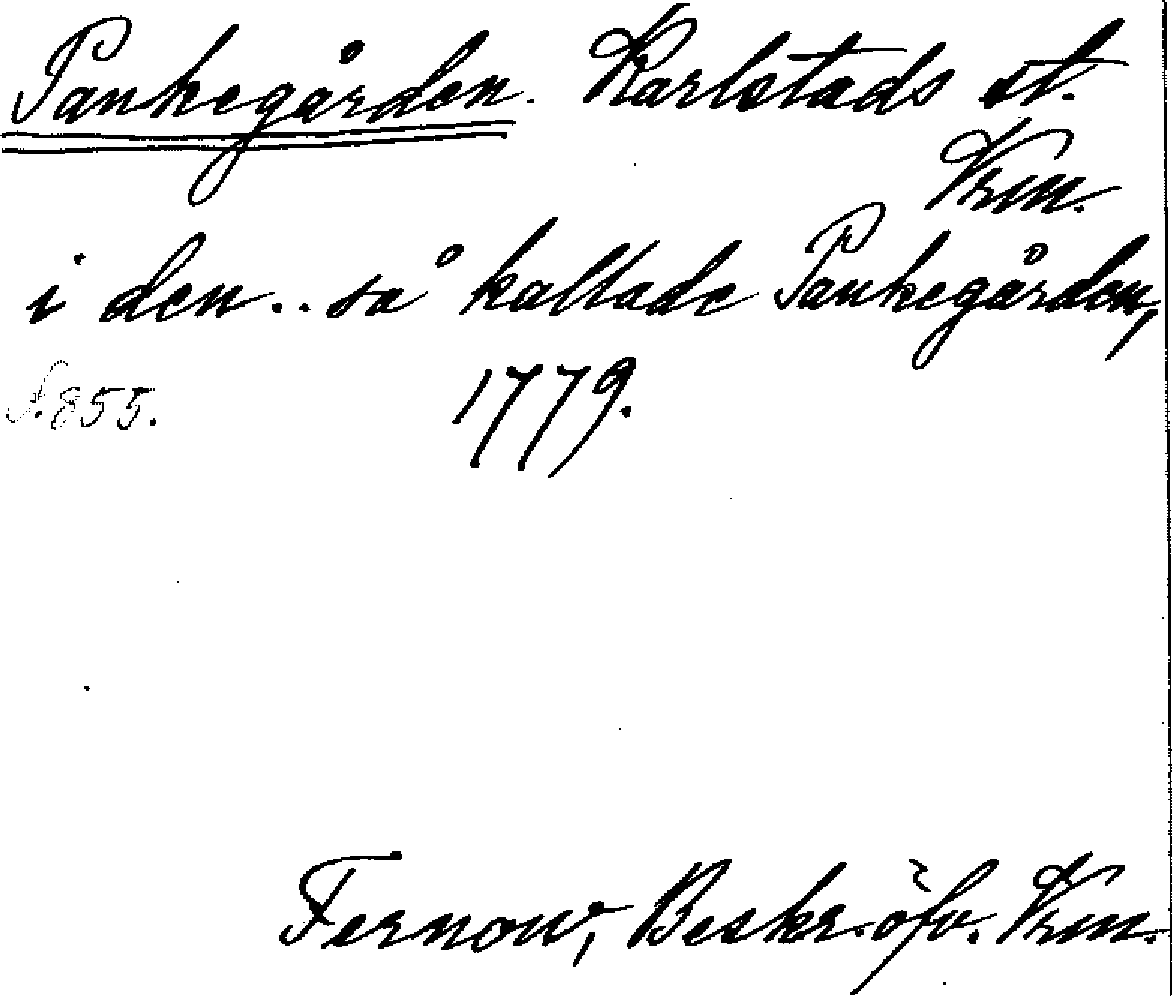 Pankegården. Karlstads st.
Vrm.
i den .. så kallade Pankegården,
S. 855. 1779.
Fernow, Beskr. öfv. Vrm.